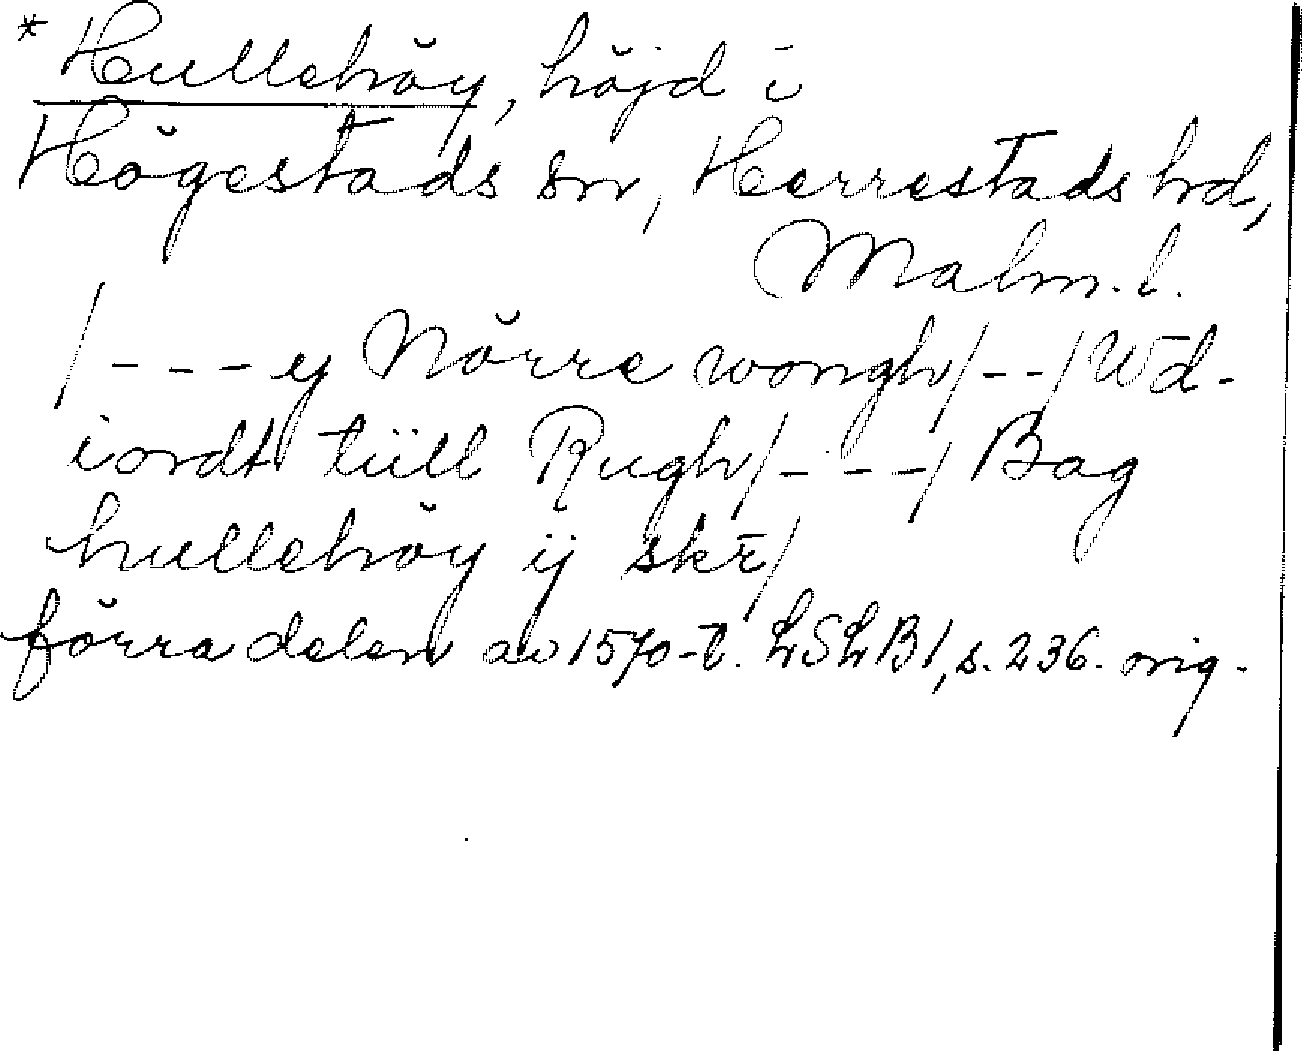 *Hullehöy, höjd i
Högestads sn, Herrestads hd,
Malm. l.
/---ij Nörre wongh/--/Wd-
iordt tiill Rugh/---/Bag
hullehöy ij skr̄/
förra delen av 1570-t. LSLB1, s. 236. orig.